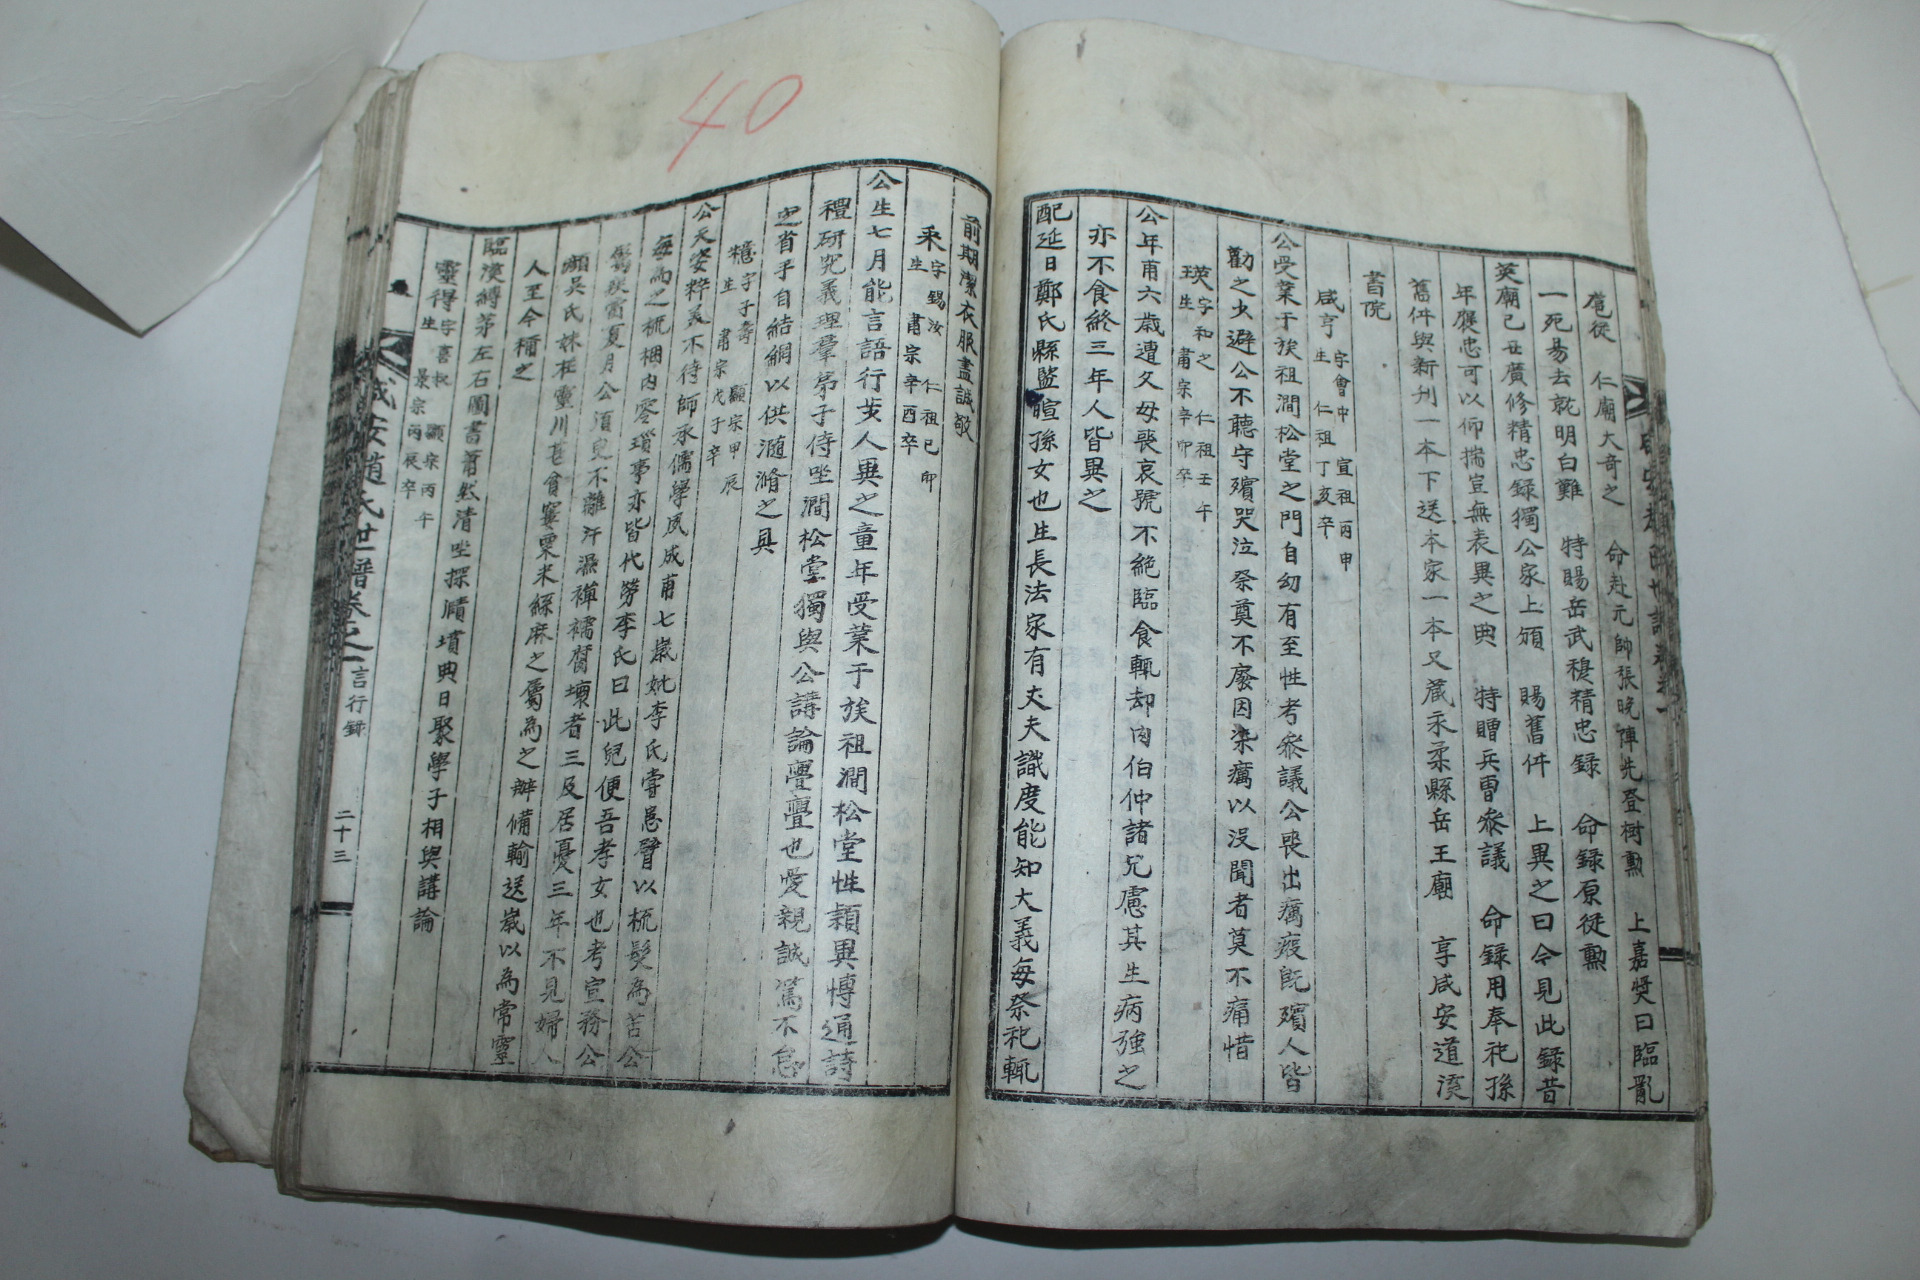 40
扈從 仁廟大奇之 命赴元帥張晚陣先登樹勳 上嘉奬曰臨亂
一死易去就明白難 特賜岳武穆精忠録 命録原從勲
英廟己丑廣修精忠録獨公家上頒 賜舊件 上異之曰今見此録昔
年褒忠可以仰揣豈無表異之典 特贈兵曹叅議 命録用奉祀孫
舊件與新刊一本下送本家一本又蔵永柔縣岳王廟 享咸安道溪
書院
咸亨 字會中 宣祖丙申生 仁祖丁亥卒
公受業于族祖澗松堂之門自幼有至性考叅議公喪出癘疫旣殯人皆
勸之少避公不聽守殯哭泣祭奠不廢因染癘以沒聞者莫不痛惜
瑛 字和之 仁祖壬午生 肅宗辛卯卒
公年甫六歲遭父母喪哀號不絶臨食輒却肉伯仲諸兄慮其生病强之
亦不食終三年人皆異之
配延日鄭氏縣監暄孫女也生長法家有丈夫識度能知大義每祭祀輒
前期潔衣服盡誠敬
釆 字錫汝 仁祖己卯生 肅宗辛酉卒
公生七月能言語行歩人異之童年受業于族祖澗松堂性穎異博通詩
禮研究義理羣弟子侍坐澗松堂獨與公講論亹亹也愛親誠篤不怠
定省手自結網以供瀡滫之具
檍 字子壽 顯宗甲辰生 肅宗戊子卒
公天姿粹美不待師承儒學夙成甫七歲妣李氏嘗患臂以梳髮為苦公
每為之梳梱内零瑣事亦皆代勞李氏曰此兒便吾孝女也考宣務公
人至今稱之
臨溪縛茅左右圖書蕭然清坐探賾墳典日聚學子相與講論
靈得 字喜叔 顯宗丙午生 景宗丙辰卒
咸安趙氏世譜卷之一 言行録 二十三